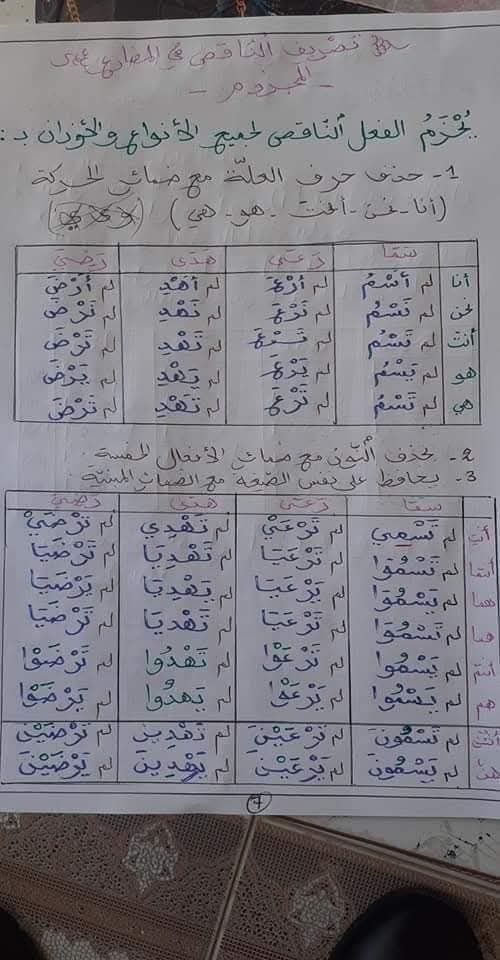 تصريف الناقص في المضارع
- المجزوم -
يُجْزَمُ الفعل النَّاقص لجميع الأنواع والأوزان بـ :
1- حذف حرف العلّة مع ضمائر الحركة
(أنا - نحن - أنت - هو - هي)
سَمَا رَعَى هَدَى رَضِيَ
أنا لم أَسْمُ لم أَرْعَ لم أَهْدِ لم أَرْضَ
نحن لم نَسْمُ لم نَرْعَ لم نَهْدِ لم نَرْضَ
أنتَ لم تَسْمُ لم تَرْعَ لم تَهْدِ لم تَرْضَ
هو لم يَسْمُ لم يَرْعَ لم يَهْدِ لم يَرْضَ
هي لم تَسْمُ لم تَرْعَ لم تَهْدِ لم تَرْضَ
2- بحذف النّون مع ضمائر الأفعال الخمسة
3- يحافظ على نفس الصّيغة مع الضمائر المبنيّة
سَمَا رَعَى هَدَى رَضِيَ
أنتِ لم تَسْمِي لم تَرْعَيْ لم تَهْدِي لم تَرْضَيْ
أنتما لم تَسْمُوَا لم تَرْعَيَا لم تَهْدِيَا لم تَرْضَيَا
هما لم يَسْمُوَا لم يَرْعَيَا لم يَهْدِيَا لم يَرْضَيَا
هما لم تَسْمُوَا لم تَرْعَيَا لم تَهْدِيَا لم تَرْضَيَا
أنتم لم تَسْمُوا لم تَرْعَوْا لم تَهْدُوا لم تَرْضَوْا
هم لم يَسْمُوا لم يَرْعَوْا لم يَهْدُوا لم يَرْضَوْا
أنتنّ لم تَسْمُونَ لم تَرْعَيْنَ لم تَهْدِينَ لم تَرْضَيْنَ
هنّ لم يَسْمُونَ لم يَرْعَيْنَ لم يَهْدِينَ لم يَرْضَيْنَ
7